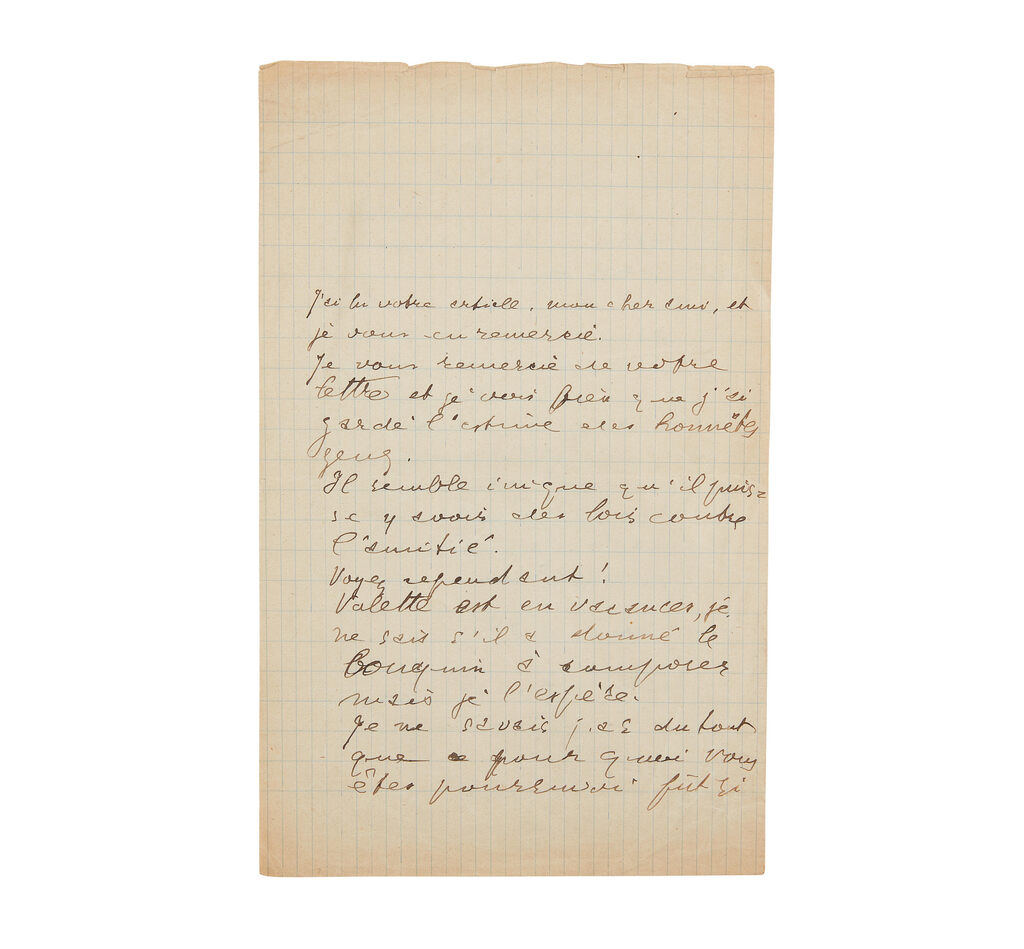 J'ai lu votre article, mon cher ami, et
je vous en remercie.
Je vous remercie de votre
lettre et je vois bien que j'ai
gardé l'estime des honnêtes
gens.
Il semble inique qu'il puis-
se y avoir des lois contre
l'amitié.
Voyez cependant !
Valette est en vacances, je
ne sais s'il a donné le
bouquin à composer
mais je l'espère.
Je ne savais pas du tout
que ce pour quoi vous
êtes poursuivi fût si